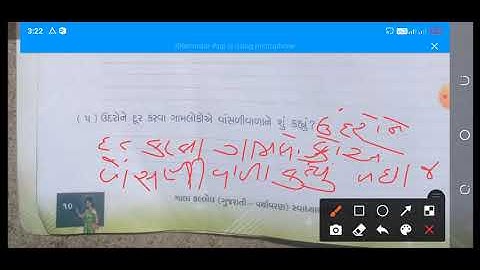 3:22
XRecorder App is using microphone
( ૫ ) ઉંદરોને દૂર કરવા ગામલોકોએ વાંસળીવાળાને શું કહ્યું?
ઉંદરોને
દૂર કરવા ગામલોકોએ
વાંસળીવાળા કહ્યું બધા જ
૧૦
બાલ કલ્લોલ (ગુજરાતી – પર્યાવરણ) સ્વાધ્યાય